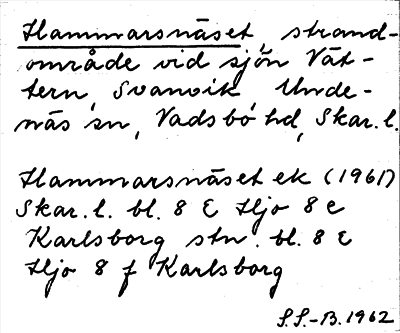 Hammarsnäset, strand-
område vid sjön Vät-
tern, Svanvik Unde-
näs sn, Vadsbo hd, Skar. l.
Hammarsnäset ek (1961)
Skar. l. bl. 8 E Hjo 8 e
Karlsborg stn. bl. 8 E
Hjo 8 f Karlsborg
S.S.-B. 1962